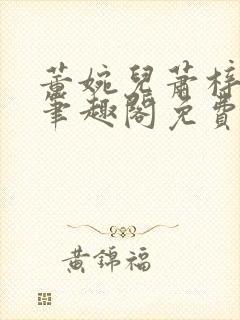 董婉兒蕭梓
筆趣閣免費
黃錦福